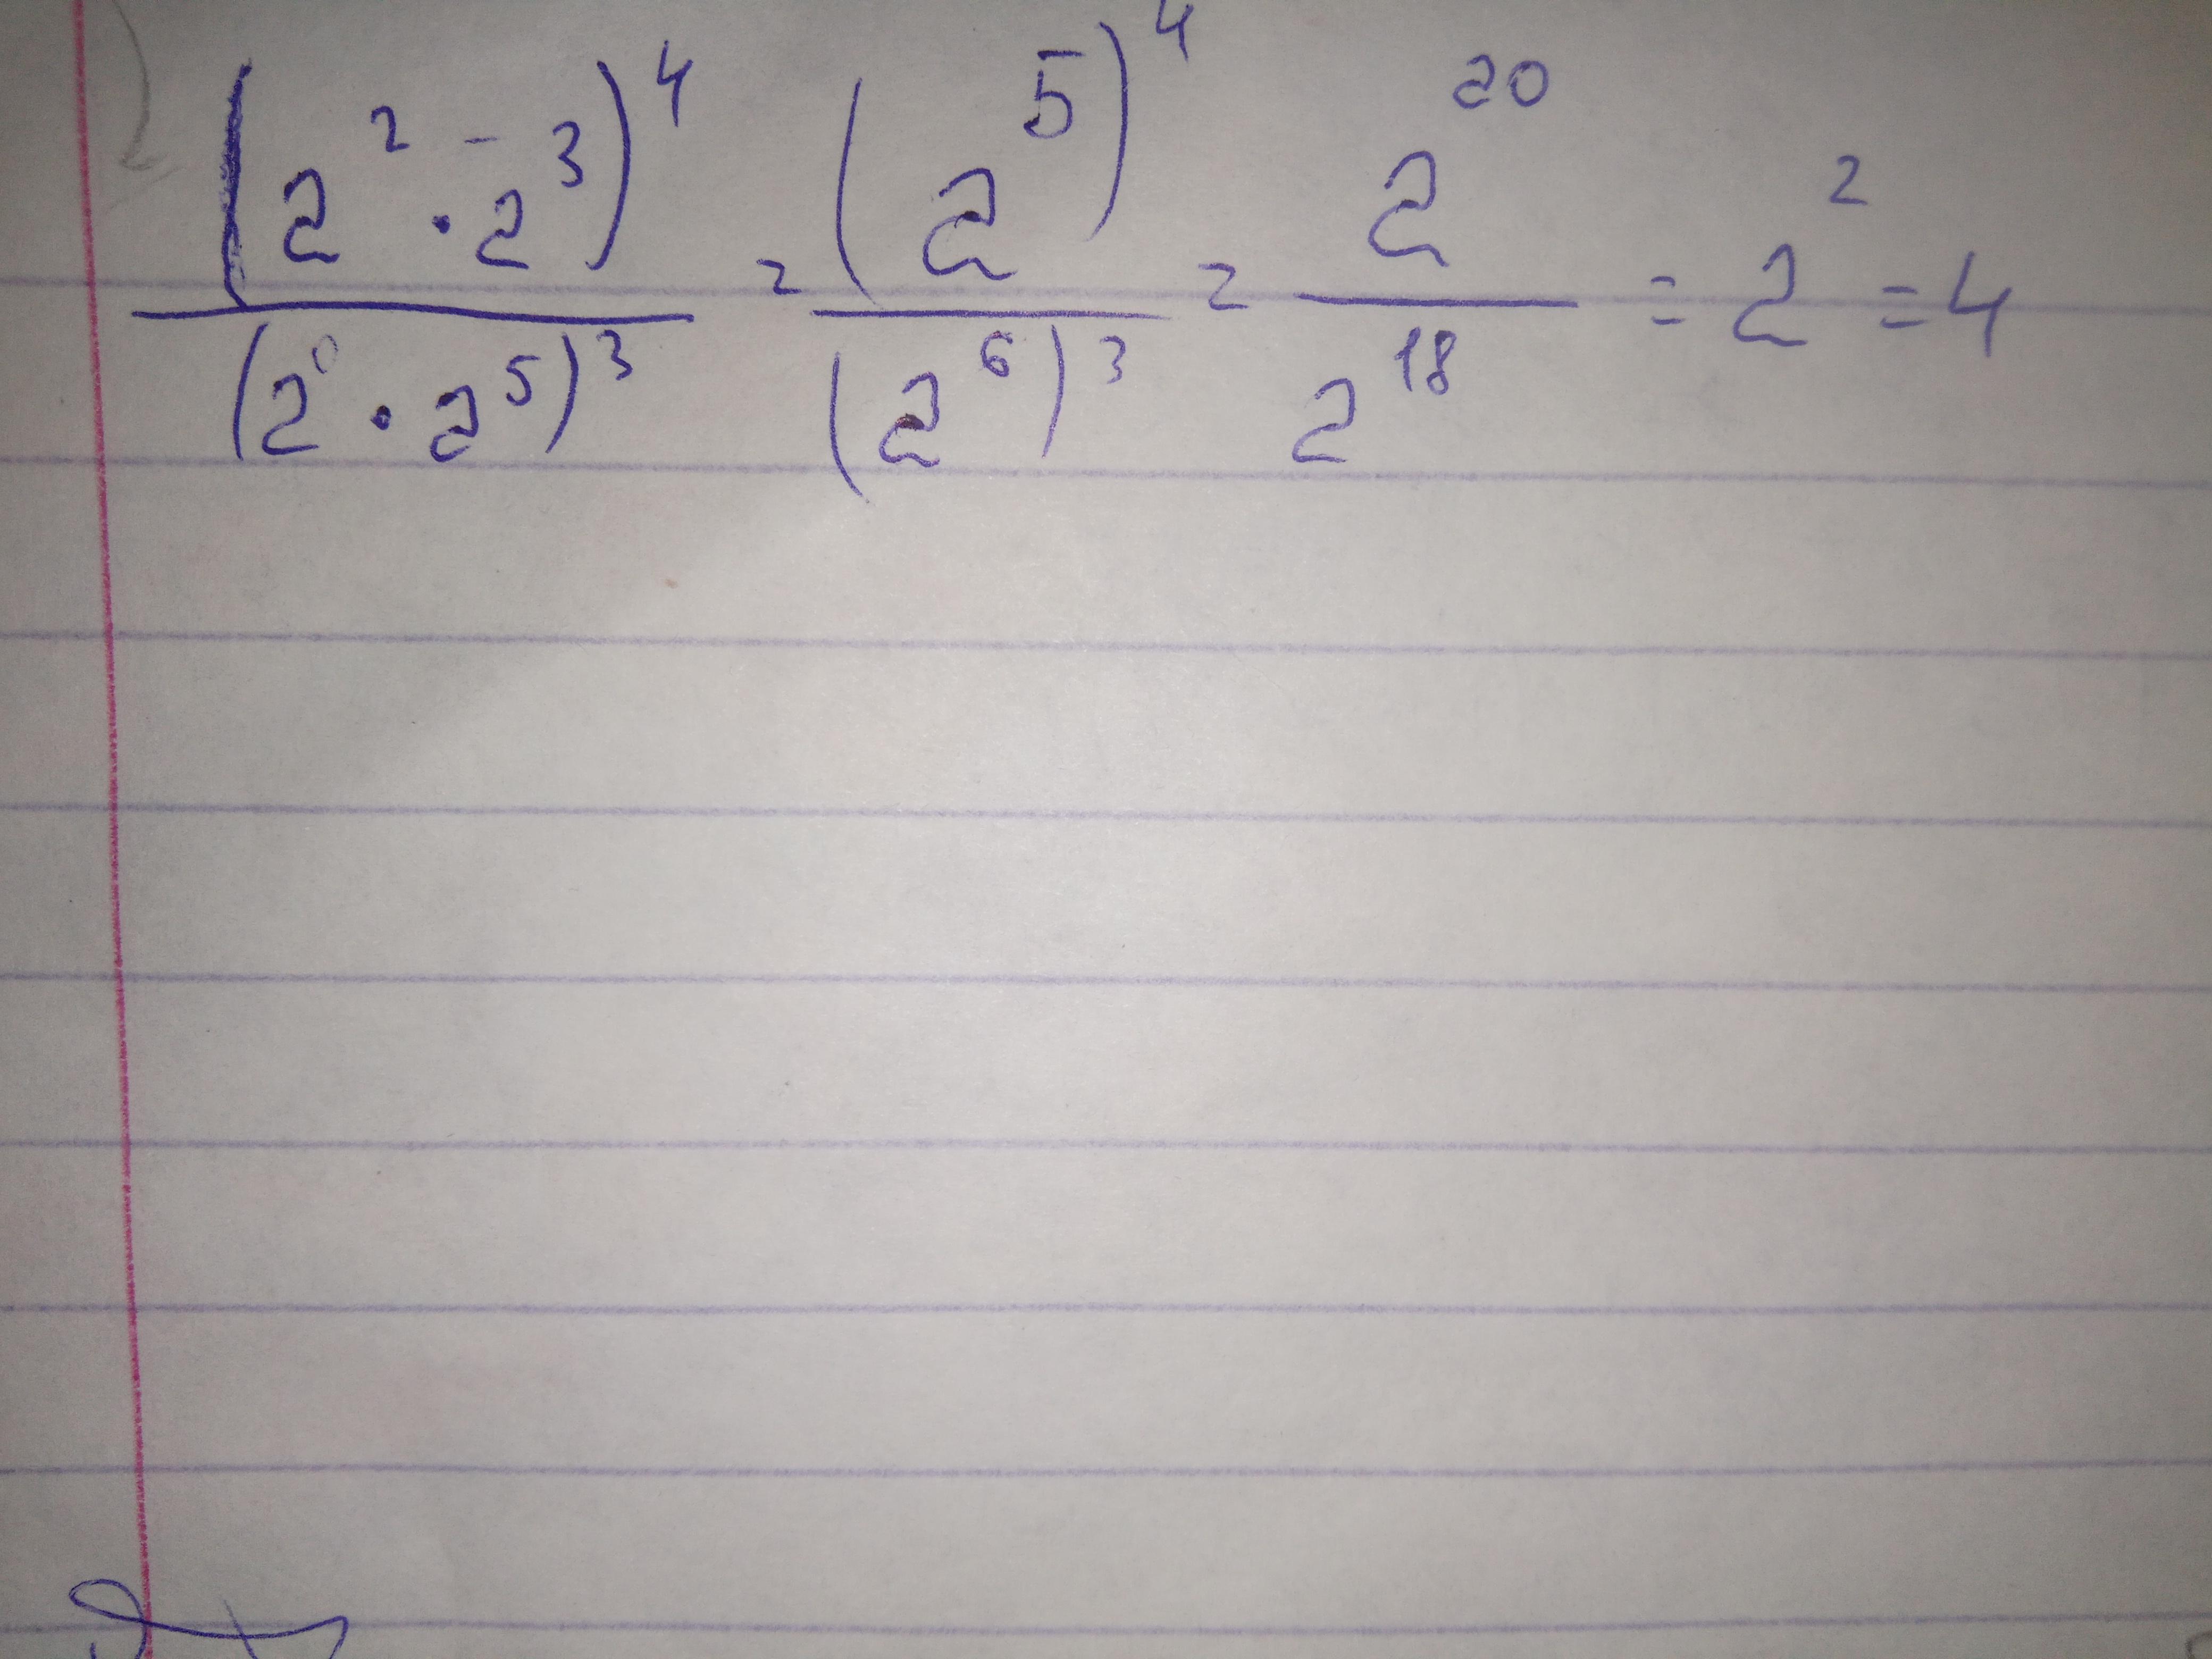 (2² · 2³)⁴ / (2 · 2⁵)³ = (2⁵)⁴ / (2⁶)³ = 2²⁰ / 2¹⁸ = 2² = 4